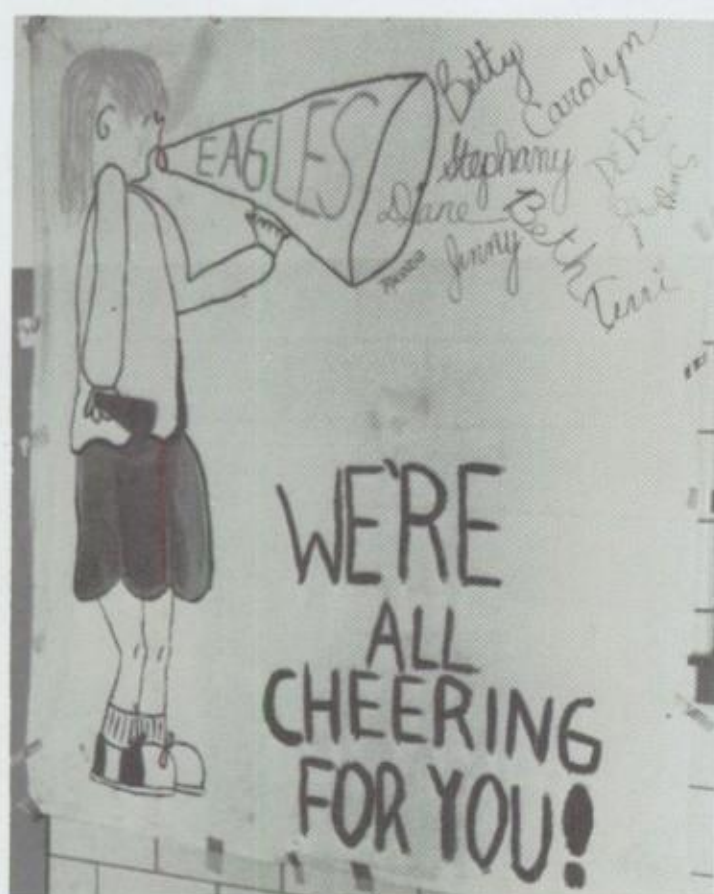 EAGLES
Betty
Carolyn
Stephany
Diane
Beth
Jinny
Terri
WE'RE
ALL
CHEERING
FOR YOU!